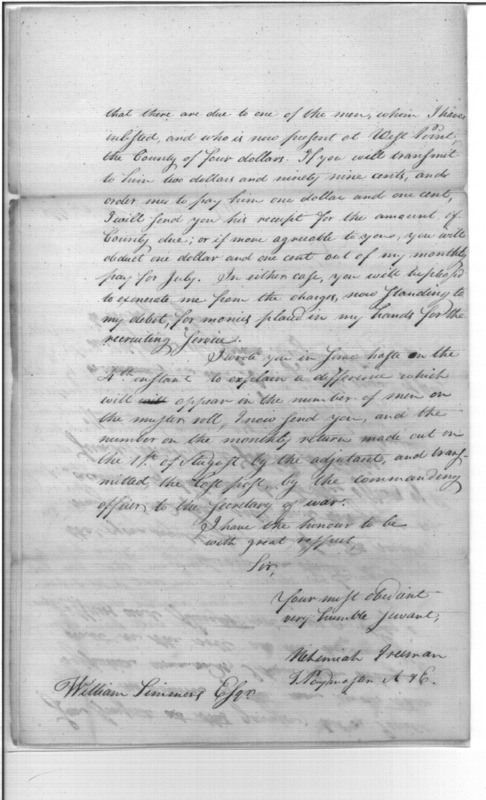 that there are due to one of the men, whom I have
inlisted, and who is now present at West Point,
the County of four dollars. If you will transmit
to him two dollars and ninety nine cents, and
order me to pay him one dollar and one cent,
I will send you his receipt for the amount of
County due; or if more agreeable to you, you will
deduct one dollar and one cent out of my monthly
pay for July. In either case, you will be pleased
to exonerate me from the charges, now standing to
my debit, for monies placed in my hands for the
recruiting service.
I wrote you in some haste on the
4th instant to explain a difference which
will appear in the number of men on
the muster roll, I now send you, and the
number on the monthly return made out on
the 1st of August by the adjutant, and trans-
mitted, the last post, by the commanding
officer, to the secretary of war.
I have the honour to be
with great respect
Sir,
Your most obedient
very humble servant,
Nehemiah Freeman
Paymaster A & E.
William Simmons Esqr